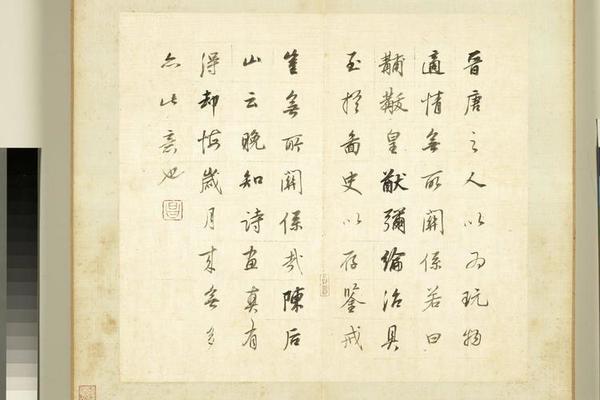 晉唐之人以為玩物
適情無所關係若曰
黼黻皇猷彌綸治具
至於圖史以存鑒戒
豈無所關係哉陳后
山云晚知詩畫真有
得卻悔歲月來無多
亦此意也